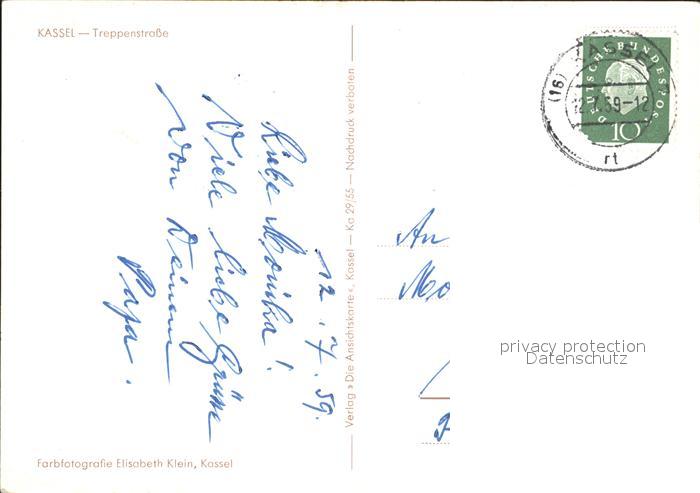 KASSEL — Treppenstraße
12.7.59.
Liebe Monika!
Viele liebe Grüsse
von Deinem
Papa.
Farbfotografie Elisabeth Klein, Kassel
Verlag »Die Ansichtskarte«, Kassel — Ka 29/55 — Nachdruck verboten
(16) KASSEL
12.7.59-12
rt
DEUTSCHE BUNDESPOST
10
An
Mo
privacy protection
Datenschutz